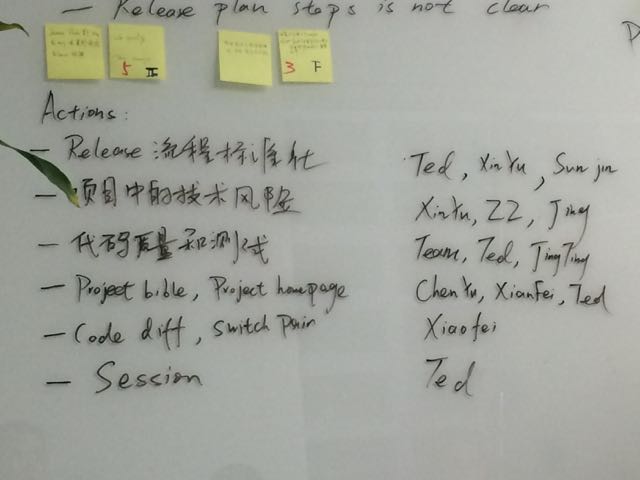 — Release plan steps is not clear
5 II
3 F
Actions:
— Release 流程标准化 Ted, XinYu, Sunjin
— 项目中的技术风险 XinYu, ZZ, Jing
— 代码质量和测试 Team, Ted, JingTing
— Project bible, Project homepage ChenYu, XianFei, Ted
— Code diff, switch pair Xiaofei
— Session Ted